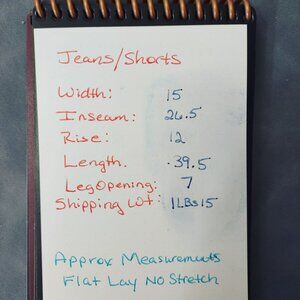 Jeans/Shorts
Width: 15
Inseam: 26.5
Rise: 12
Length. 39.5
Leg Opening: 7
Shipping Wt: 1LBS15
Approx Measurements
Flat Lay No Stretch